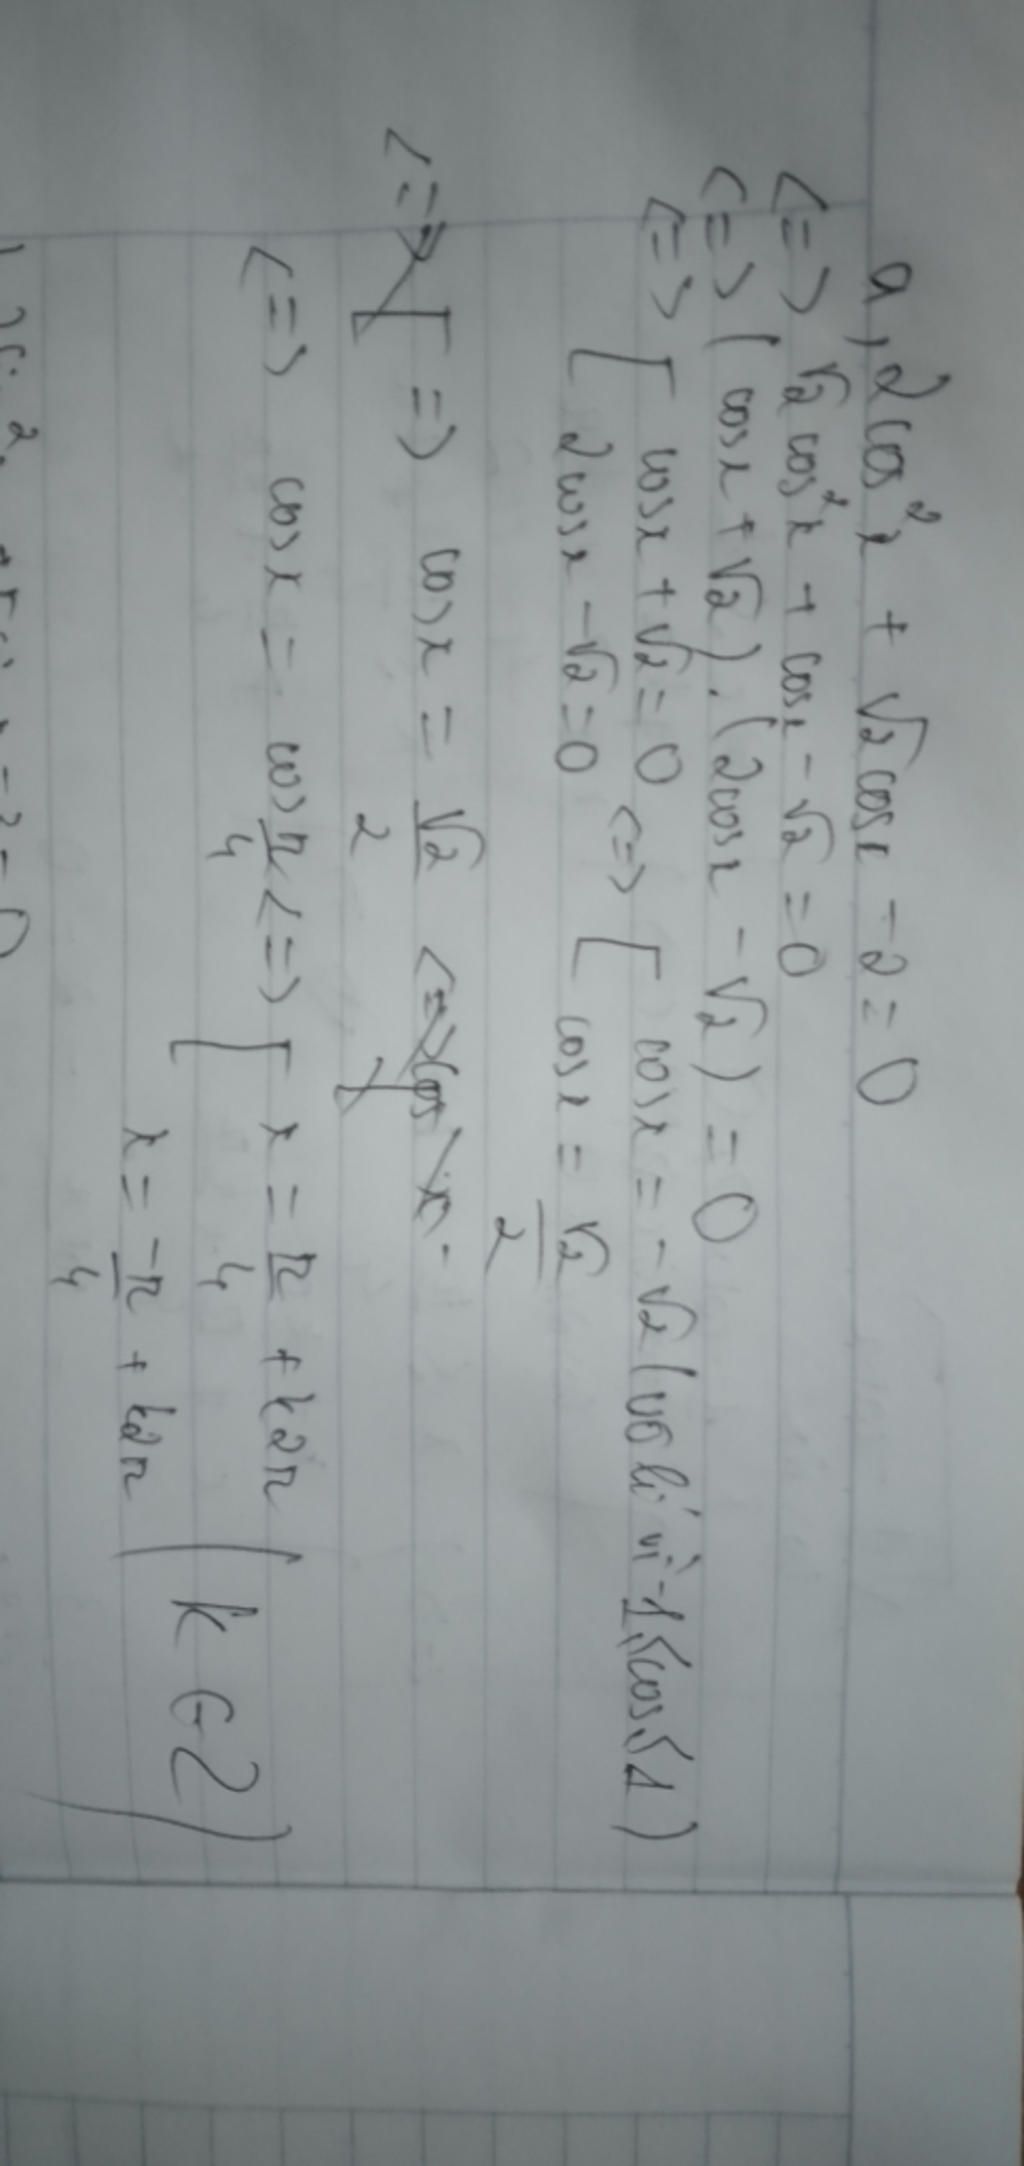 a, 2cos²x + √2cosx - 2 = 0
<=> √2cos²x + cosx - √2 = 0
<=> (cosx + √2).(2cosx - √2) = 0
<=> [ cosx + √2 = 0 <=> [ cosx = -√2 (vô lí vì -1≤cos≤1)
2cosx - √2 = 0 cosx = √2/2
<=> [ => cosx = √2/2 <=> cos x
<=> cosx = cos π/4 <=> [ x = π/4 + k2π
x = -π/4 + k2π (k ∈ Z)